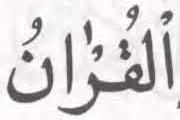 اَلْقُرْاٰنُ